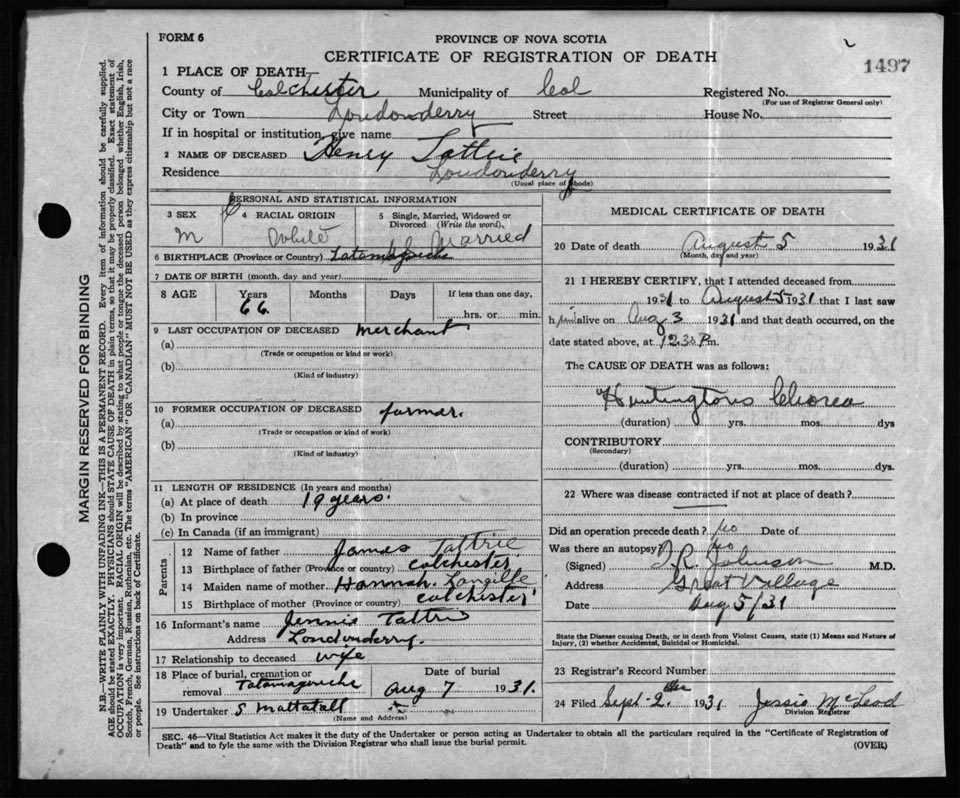 FORM 6
PROVINCE OF NOVA SCOTIA
CERTIFICATE OF REGISTRATION OF DEATH
1497
1 PLACE OF DEATH
County of Colchester Municipality of Col Registered No.
(For use of Registrar General only)
City or Town Londonderry Street House No.
If in hospital or institution, give name
2 NAME OF DECEASED Henry Tattrie
Residence Londonderry
(Usual place of abode)
PERSONAL AND STATISTICAL INFORMATION
3 SEX 4 RACIAL ORIGIN 5 Single, Married, Widowed or Divorced (Write the word)
M White Married
6 BIRTHPLACE (Province or Country) Tatamagouche
7 DATE OF BIRTH (month, day and year)
8 AGE Years Months Days If less than one day,
66. hrs. or min.
9 LAST OCCUPATION OF DECEASED merchant
(a)
(Trade or occupation or kind or work)
(b)
(Kind of industry)
10 FORMER OCCUPATION OF DECEASED farmer.
(a)
(Trade or occupation or kind or work)
(b)
(Kind of industry)
11 LENGTH OF RESIDENCE (In years and months)
(a) At place of death 19 years.
(b) In province
(c) In Canada (if an immigrant)
Parents
12 Name of father James Tattrie
13 Birthplace of father (Province or country) colchester
14 Maiden name of mother Hannah Langille
15 Birthplace of mother (Province or country) colchester
16 Informant's name Jennie
Address Londonderry.
17 Relationship to deceased wife
18 Place of burial, cremation or removal Tatamagouche
Date of burial
Aug 7 1931.
19 Undertaker S Mattatall
(Name and Address)
MEDICAL CERTIFICATE OF DEATH
20 Date of death August 5 1931
(Month, day and year)
21 I HEREBY CERTIFY, that I attended deceased from
1931 to August 5 1931 that I last saw
him alive on Aug 3 1931 and that death occurred, on the
date stated above, at 12.30 P.m.
The CAUSE OF DEATH was as follows:
Huntingtons Chorea
(duration) yrs. mos. dys
CONTRIBUTORY
(Secondary)
(duration) yrs. mos. dys.
22 Where was disease contracted if not at place of death?
Did an operation precede death? No Date of
Was there an autopsy? No
(Signed) Johnson M.D.
Address Great Village
Date Aug 5/31
State the Disease causing Death, or in death from Violent Causes, state (1) Means and Nature of
Injury, (2) whether Accidental, Suicidal or Homicidal.
23 Registrar's Record Number
24 Filed Sept. 2 1931 Jessie McLeod
Division Registrar
SEC. 46—Vital Statistics Act makes it the duty of the Undertaker or person acting as Undertaker to obtain all the particulars required in the "Certificate of Registration of
Death" and to fyle the same with the Division Registrar who shall issue the burial permit.
(OVER)
MARGIN RESERVED FOR BINDING
N.B.—WRITE PLAINLY WITH UNFADING INK—THIS IS A PERMANENT RECORD. Every item of information should be carefully supplied.
AGE should be stated EXACTLY. PHYSICIANS should STATE CAUSE OF DEATH in plain terms, so that it may be properly classified. Exact statement of
OCCUPATION is very important. RACIAL ORIGIN will be described by stating to what people or tongue the deceased person belonged whether English, Irish,
Scotch, French, German, Russian, Ruthenian, etc. The terms "AMERICAN" OR "CANADIAN" MUST NOT BE USED as they express citizenship but not a race
or people. See instructions on back of Certificate.